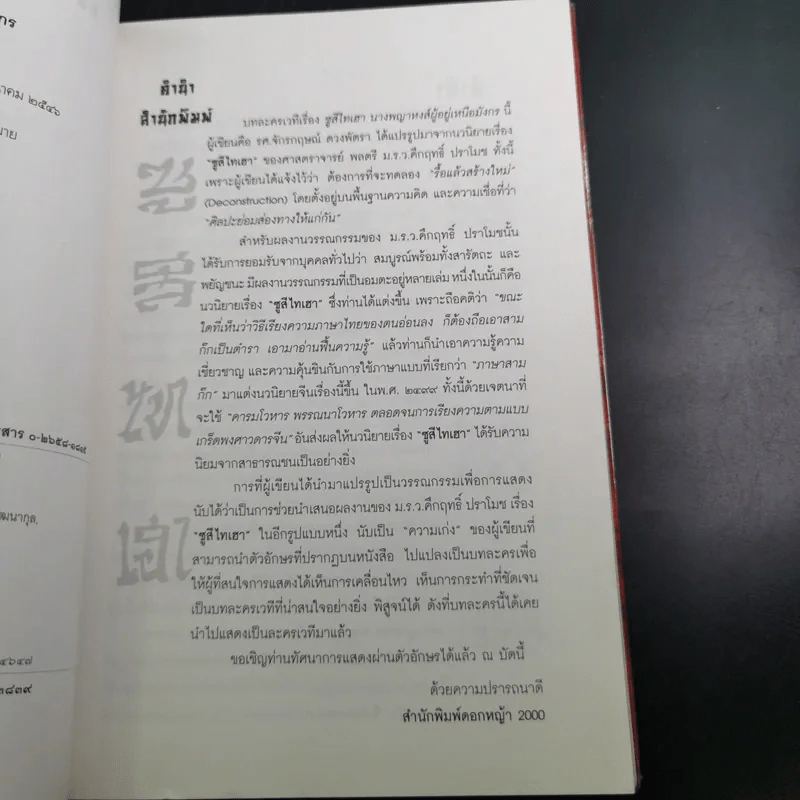 กร
าคม ๒๕๔๖
มาย
สาร ๐-๒๖๕๘-๑๘๙
ฒนากุล,
๔๖๔๗
๒๘๓๙
คำนำ
สำนักพิมพ์
ซู
สี
ไท
เฮา
บทละครเวทีเรื่อง ซูสีไทเฮา นางพญาหงส์ผู้อยู่เหนือมังกร นี้
ผู้เขียนคือ รศ.จักรกฤษณ์ ดวงพัตรา ได้แปรรูปมาจากนวนิยายเรื่อง
"ซูสีไทเฮา" ของศาสตราจารย์ พลตรี ม.ร.ว.คึกฤทธิ์ ปราโมช ทั้งนี้
เพราะผู้เขียนได้แจ้งไว้ว่า ต้องการที่จะทดลอง "รื้อแล้วสร้างใหม่"
(Deconstruction) โดยตั้งอยู่บนพื้นฐานความคิด และความเชื่อที่ว่า
"ศิลปะย่อมส่องทางให้แก่กัน"
สำหรับผลงานวรรณกรรมของ ม.ร.ว.คึกฤทธิ์ ปราโมชนั้น
ได้รับการยอมรับจากบุคคลทั่วไปว่า สมบูรณ์พร้อมทั้งสารัตถะ และ
พยัญชนะ มีผลงานวรรณกรรมที่เป็นอมตะอยู่หลายเล่ม หนึ่งในนั้นก็คือ
นวนิยายเรื่อง "ซูสีไทเฮา" ซึ่งท่านได้แต่งขึ้น เพราะถือคติว่า "ขณะ
ใดที่เห็นว่าวิธีเรียงความภาษาไทยของตนอ่อนลง ก็ต้องถือเอาสาม
ก๊กเป็นตำรา เอามาอ่านฟื้นความรู้" แล้วท่านก็นำเอาความรู้ความ
เชี่ยวชาญ และความคุ้นชินกับการใช้ภาษาแบบที่เรียกว่า "ภาษาสาม
ก๊ก" มาแต่งนวนิยายจีนเรื่องนี้ขึ้น ในพ.ศ. ๒๔๙๙ ทั้งนี้ด้วยเจตนาที่
จะใช้ "คารมโวหาร พรรณนาโวหาร ตลอดจนการเรียงความตามแบบ
เกร็ดพงศาวดารจีน" อันส่งผลให้นวนิยายเรื่อง "ซูสีไทเฮา" ได้รับความ
นิยมจากสาธารณชนเป็นอย่างยิ่ง
การที่ผู้เขียนได้นำมาแปรรูปเป็นวรรณกรรมเพื่อการแสดง
นับได้ว่าเป็นการช่วยนำเสนอผลงานของ ม.ร.ว.คึกฤทธิ์ ปราโมช เรื่อง
"ซูสีไทเฮา" ในอีกรูปแบบหนึ่ง นับเป็น "ความเก่ง" ของผู้เขียนที่
สามารถนำตัวอักษรที่ปรากฏบนหนังสือ ไปแปลงเป็นบทละครเพื่อ
ให้ผู้ที่สนใจการแสดงได้เห็นการเคลื่อนไหว เห็นการกระทำที่ชัดเจน
เป็นบทละครเวทีที่น่าสนใจอย่างยิ่ง พิสูจน์ได้ ดังที่บทละครนี้ได้เคย
นำไปแสดงเป็นละครเวทีมาแล้ว
ขอเชิญท่านทัศนาการแสดงผ่านตัวอักษรได้แล้ว ณ บัดนี้
ด้วยความปรารถนาดี
สำนักพิมพ์ดอกหญ้า 2000